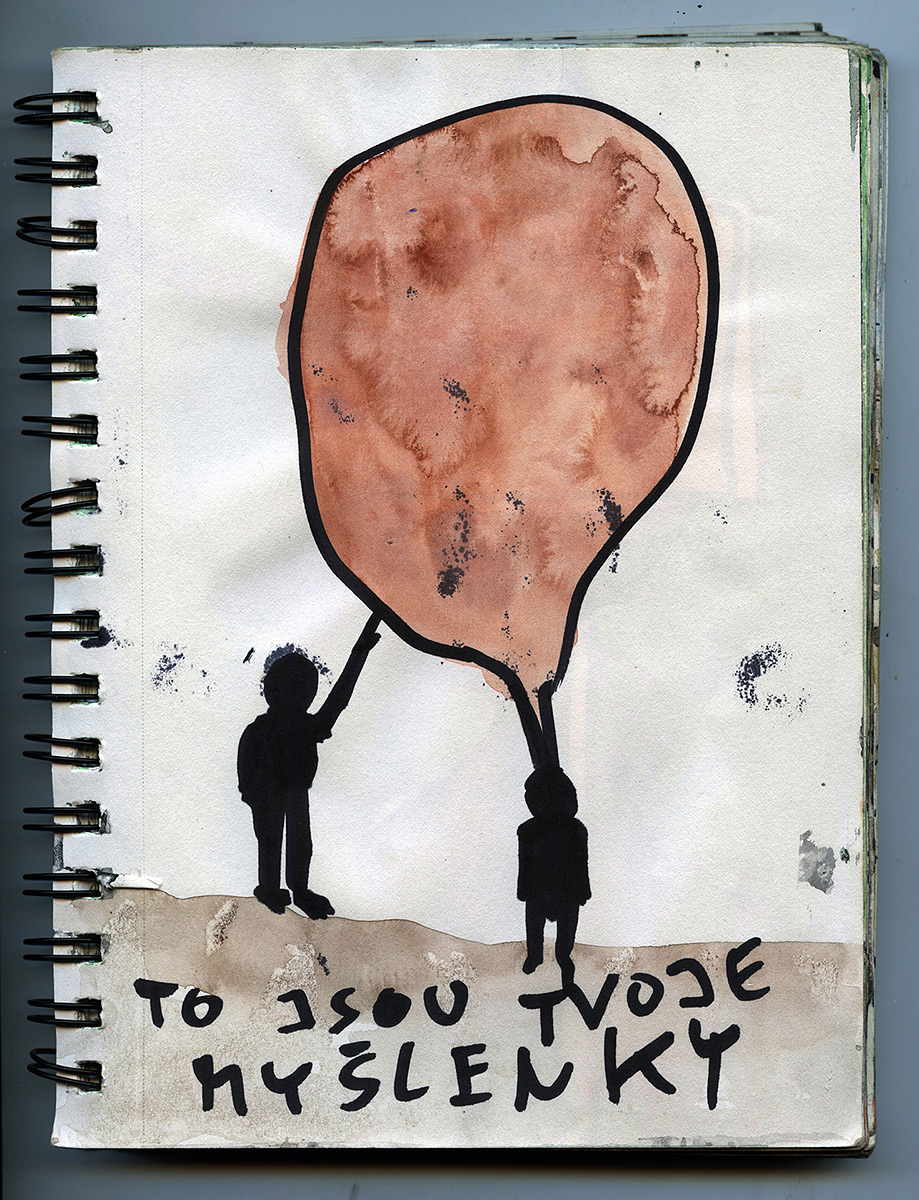 TO JSOU TVOJE
MYŠLENKY